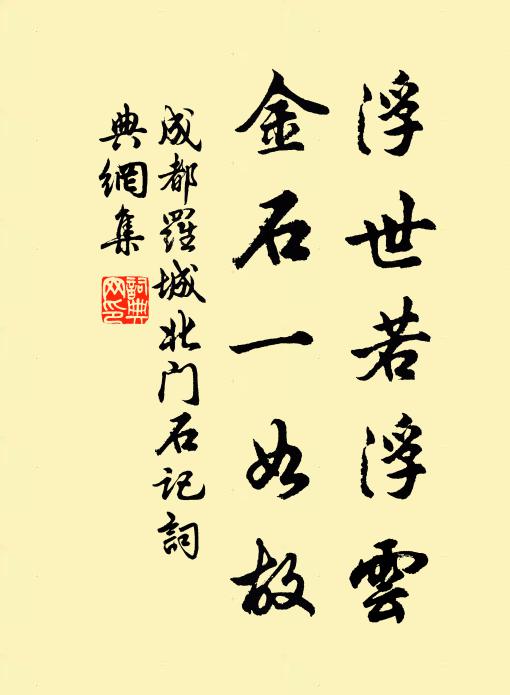 浮世若浮雲
金石一如故
成都羅城北门石记詞
典網集
詞典
网印